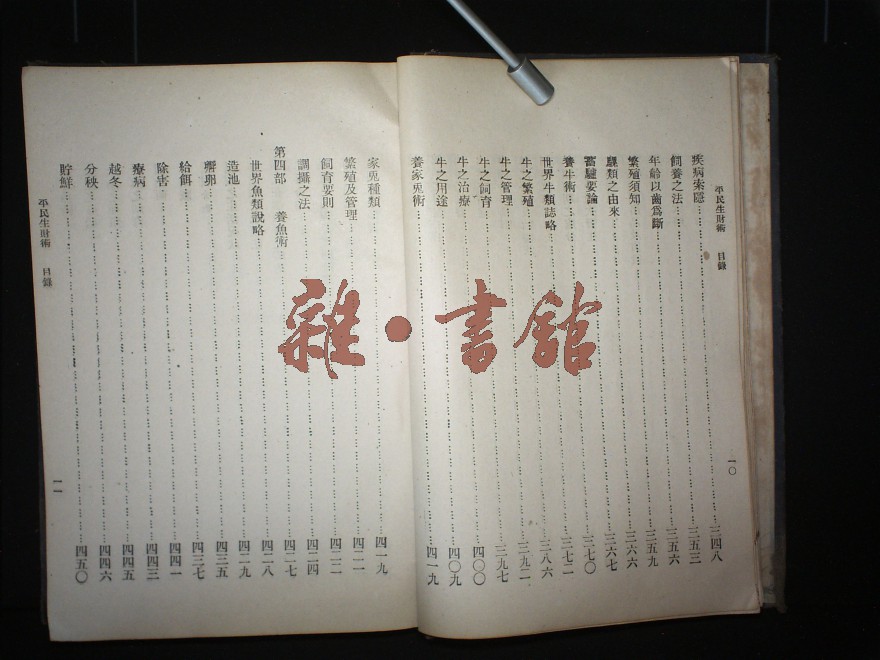 平民生財術 目錄
一〇
疾病索隱……三四八
飼養之法……三五三
年齡以齒爲斷……三五六
繁殖須知……三五九
騾類之由來……三六六
畜驢要論……三六七
養牛術……三七〇
世界牛類誌略……三七二
牛之繁殖……三八六
牛之管理……三九二
牛之飼育……三九七
牛之治療……四〇〇
牛之用途……四〇九
養家兎術……四一九
家兎種類……四一九
繁殖及管理……四二一
飼育要則……四二二
調攝之法……四二四
第四部 養魚術……四二七
世界魚類說略……四二八
造池……四二九
孵卵……四三五
給餌……四三七
除害……四四一
療病……四四三
越冬……四四五
分秧……四四六
貯鮮……四五〇
平民生財術 目錄
一一
雜·書館